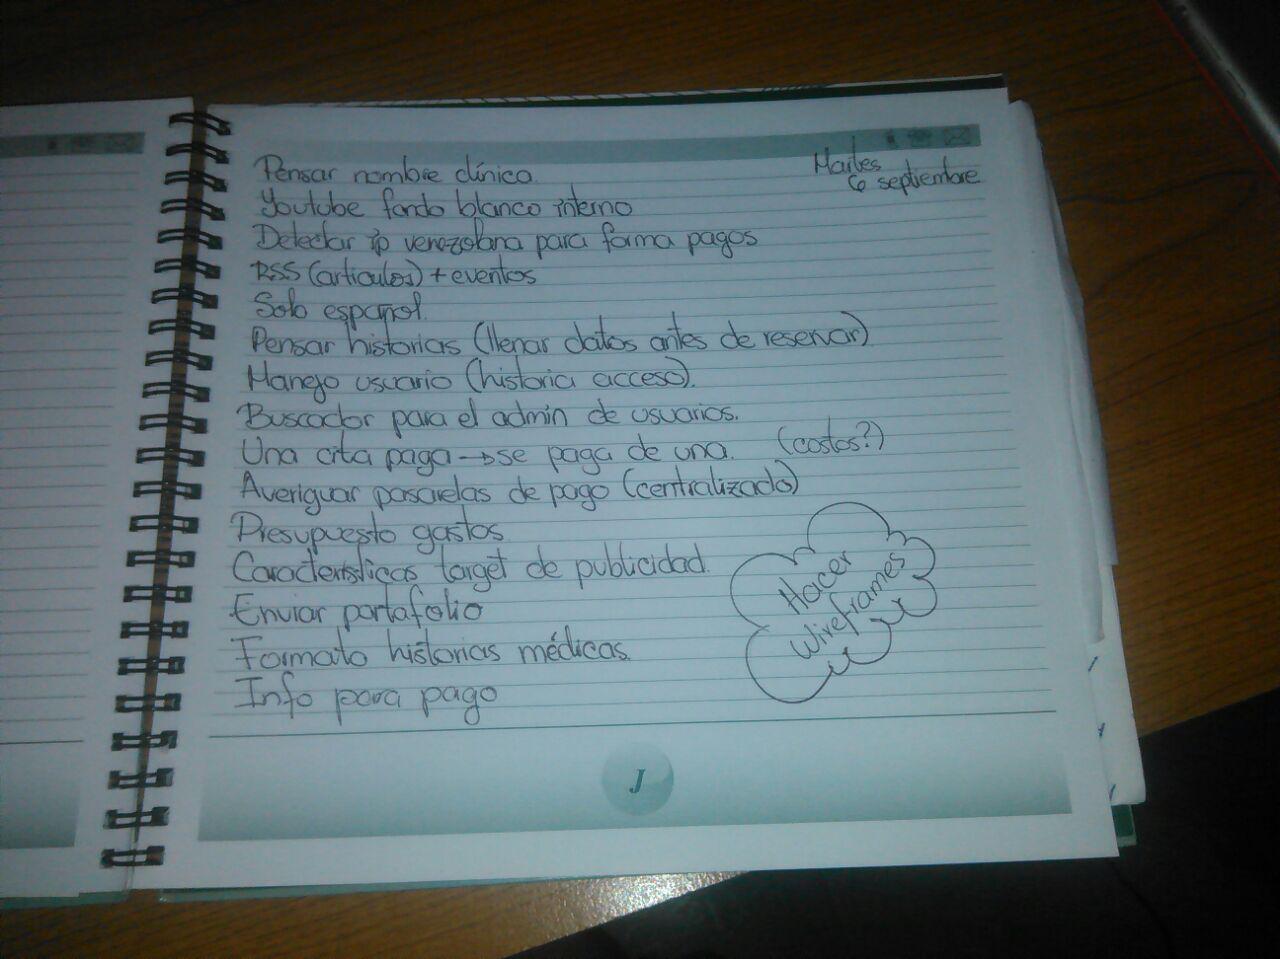 Pensar nombre clínica.
Martes
6 septiembre
Youtube fondo blanco interno
Detectar ip venezolana para forma pagos
RSS (articulos) + eventos
Solo español.
Pensar historias (llenar datos antes de reservar)
Manejo usuario (historia acceso).
Buscador para el admin de usuarios.
Una cita paga → se paga de una. (costos?)
Averiguar pasarelas de pago (centralizado)
Presupuesto gastos
Características target de publicidad.
Enviar portafolio
Formato historias médicas.
Info para pago
Hacer
wireframes
J